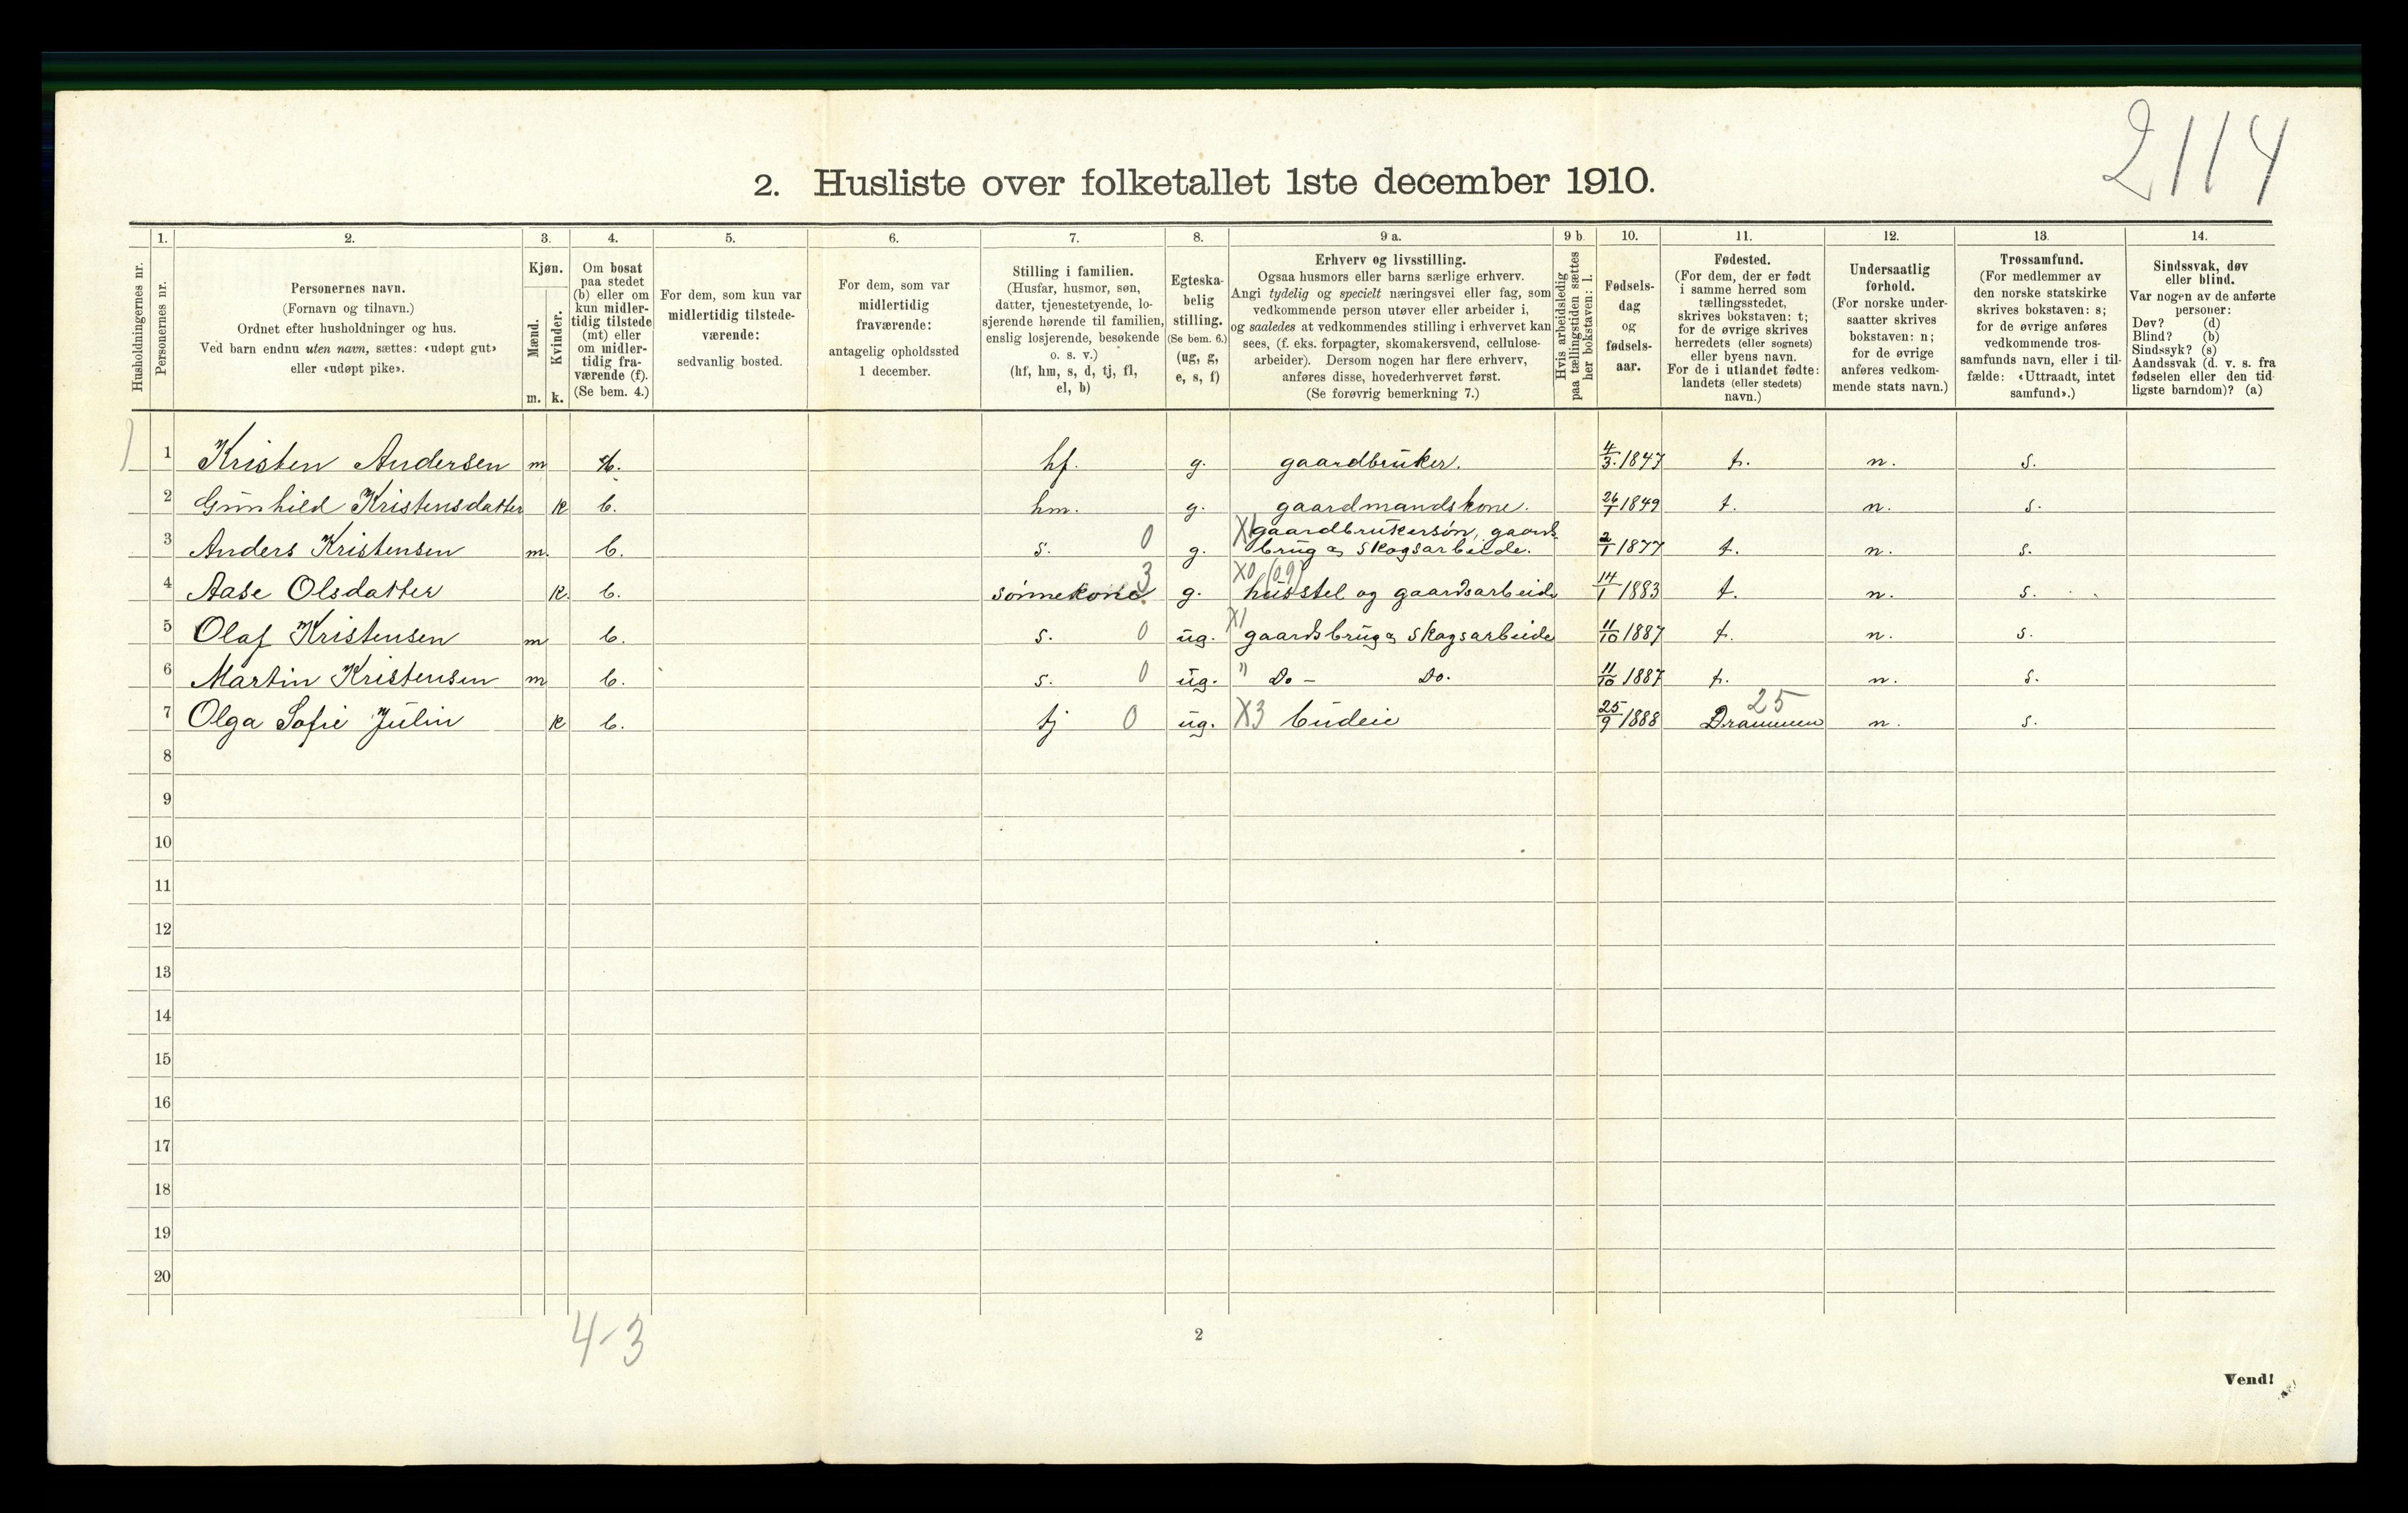 2114
2. Husliste over folketallet 1ste december 1910.
Husholdningernes nr.
1.
Personernes nr.
2.
Personernes navn.
(Fornavn og tilnavn.)
Ordnet efter husholdninger og hus.
Ved barn endnu uten navn, sættes: «udøpt gut»
eller «udøpt pike».
3.
Kjøn.
Mænd.
Kvinder.
m. k.
4.
Om bosat
paa stedet
(b) eller om
kun midler-
tidig tilstede
(mt) eller
om midler-
tidig fra-
værende (f).
(Se bem. 4.)
5.
For dem, som kun var
midlertidig tilstede-
værende:
sedvanlig bosted.
6.
For dem, som var
midlertidig
fraværende:
antagelig opholdssted
1 december.
7.
Stilling i familien.
(Husfar, husmor, søn,
datter, tjenestetyende, lo-
sjerende hørende til familien,
enslig losjerende, besøkende
o. s. v.)
(hf, hm, s, d, tj, fl,
el, b)
8.
Egteska-
belig
stilling.
(Se bem. 6.)
(ug, g,
e, s, f)
9 a.
Erhverv og livsstilling.
Ogsaa husmors eller barns særlige erhverv.
Angi tydelig og specielt næringsvei eller fag, som
vedkommende person utøver eller arbeider i,
og saaledes at vedkommendes stilling i erhvervet kan
sees, (f. eks. forpagter, skomakersvend, cellulose-
arbeider). Dersom nogen har flere erhverv,
anføres disse, hovederhvervet først.
(Se forøvrig bemerkning 7.)
9 b
Hvis arbeidsledig
paa tællingstiden sættes
her bokstaven: l.
10.
Fødsels-
dag
og
fødsels-
aar.
11.
Fødested.
(For dem, der er født
i samme herred som
tællingsstedet,
skrives bokstaven: t;
for de øvrige skrives
herredets (eller sognets)
eller byens navn.
For de i utlandet fødte:
landets (eller stedets)
navn.)
12.
Undersaatlig
forhold.
(For norske under-
saatter skrives
bokstaven: n;
for de øvrige
anføres vedkom-
mende stats navn.)
13.
Trossamfund.
(For medlemmer av
den norske statskirke
skrives bokstaven: s;
for de øvrige anføres
vedkommende tros-
samfunds navn, eller i til-
fælde: «Uttraadt, intet
samfund».)
14.
Sindssvak, døv
eller blind.
Var nogen av de anførte
personer:
Døv? (d)
Blind? (b)
Sindssyk? (s)
Aandssvak (d. v. s. fra
fødselen eller den tid-
ligste barndom)? (a)
1 Kristen Andersen m b. hf. g. gaardbruker. 4/3. 1847 t. n. s.
2 Gunhild Kristensdatter k b. hm. g. gaardmandskone. 26/1 1849 t. n. s.
3 Anders Kristensen m. b. s. 0 g. X1 gaardbrukersøn, gaards
brug og skogsarbeide. 2/1 1877 t. n. s.
4 Aase Olsdatter k. b. sønnekone 3 g. X0 (09) husstel og gaardsarbeide 14/1 1883 t. n. s.
5 Olaf Kristensen m b. s. 0 ug. X1 gaardsbrug og skogsarbeide 11/10 1887 t. n. s.
6 Martin Kristensen m b. s. 0 ug. " Do - Do. 11/10 1887 t. n. s.
7 Olga Sofie Julin k b. tj 0 ug. X3 budeie 25/9 1888 25 Drammen n. s.
8
9
10
11
12
13
14
15
16
17
18
19
20
4-3
2
Vend!